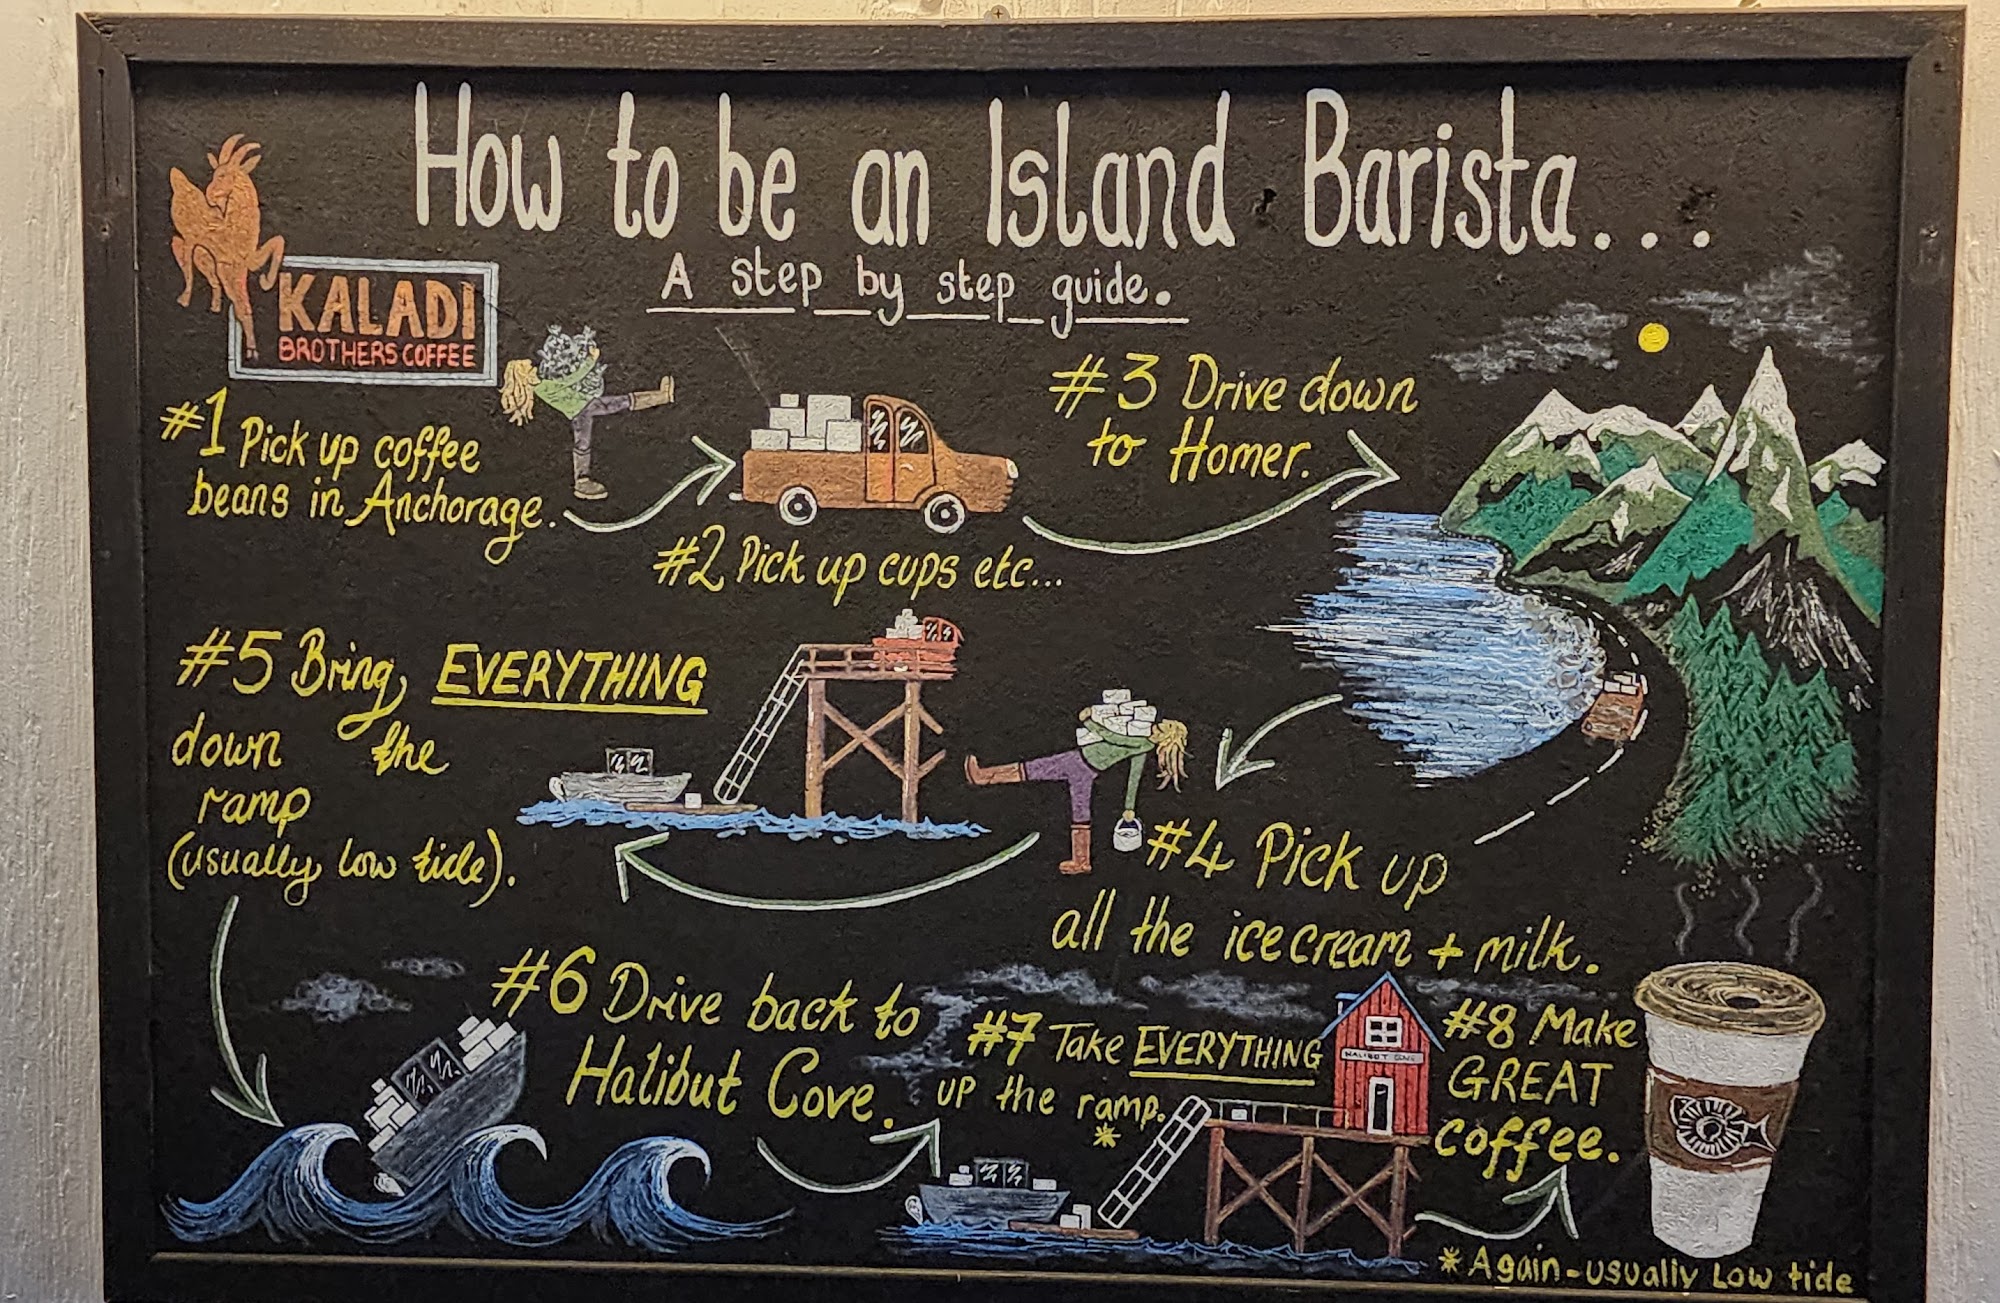 How to be an Island Barista...
A step by step guide.
KALADI
BROTHERS COFFEE
#1 Pick up coffee
beans in Anchorage.
#2 Pick up cups etc...
#3 Drive down
to Homer.
#4 Pick up
all the ice cream + milk.
#5 Bring EVERYTHING
down the
ramp
(usually low tide).
#6 Drive back to
Halibut Cove.
#7 Take EVERYTHING
up the ramp.
*
HALIBUT COVE
#8 Make
GREAT
coffee.
* Again - usually low tide